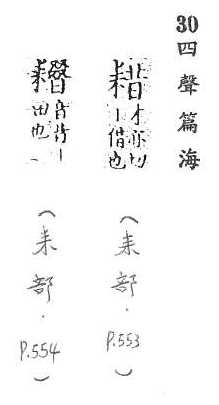 30 四聲篇海
耤 才亦切丨借也
(耒部.P.553)
音昔丨田也
(耒部.P.554)